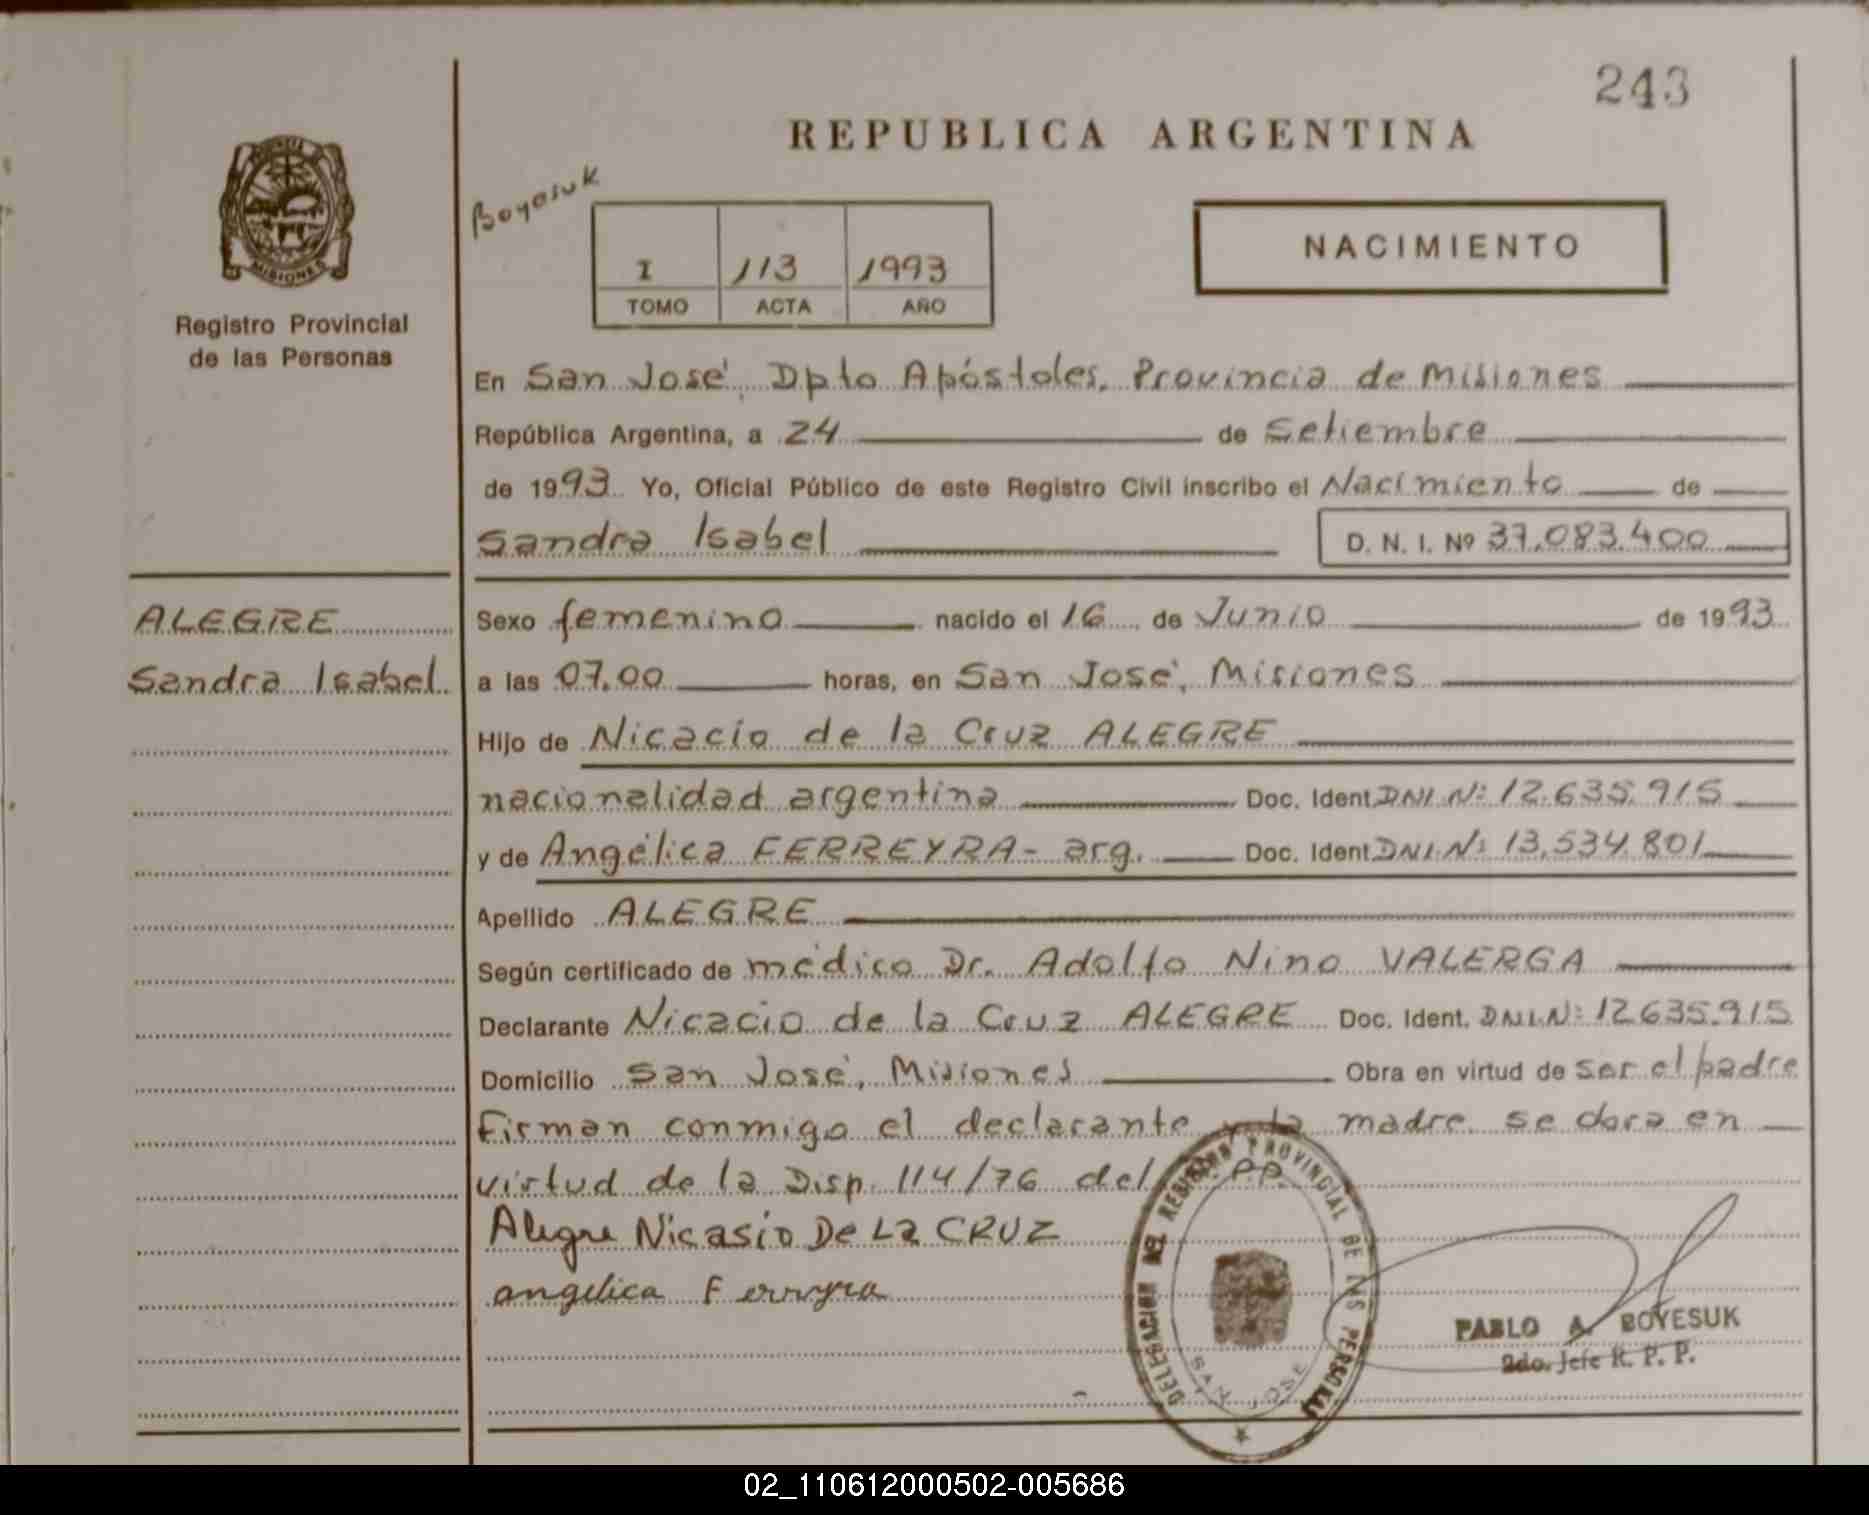 243
REPUBLICA ARGENTINA
Boyesuk
NACIMIENTO
I 113 1993
TOMO ACTA AÑO
MISIONES
Registro Provincial
de las Personas
En San José, Dpto Apóstoles, Provincia de Misiones
República Argentina, a 24 de Setiembre
de 1993 Yo, Oficial Público de este Registro Civil inscribo el Nacimiento de
Sandra Isabel D. N. I. Nº 37.083.400
ALEGRE
Sandra Isabel
Sexo femenino nacido el 16 de Junio de 1993
a las 07.00 horas, en San José, Misiones
Hijo de Nicacio de la Cruz ALEGRE
nacionalidad argentina Doc. Ident DNI.Nº 12.635.915
y de Angélica FERREYRA- arg. Doc. Ident DNI.Nº 13.534.801
Apellido ALEGRE
Según certificado de médico Dr. Adolfo Nino VALERGA
Declarante Nicacio de la Cruz ALEGRE Doc. Ident. DNI.Nº 12.635.915
Domicilio San José, Misiones Obra en virtud de ser el padre
Firman conmigo el declarante y la madre se labra en
virtud de la Disp. 114/76 del R.P.P.
Alegre Nicasio De La CRUZ
angelica Ferreyra
DELEGACION DEL REGISTRO PROVINCIAL DE LAS PERSONAS
SAN JOSE
PABLO A. BOYESUK
2do. Jefe R. P. P.
02_110612000502-005686